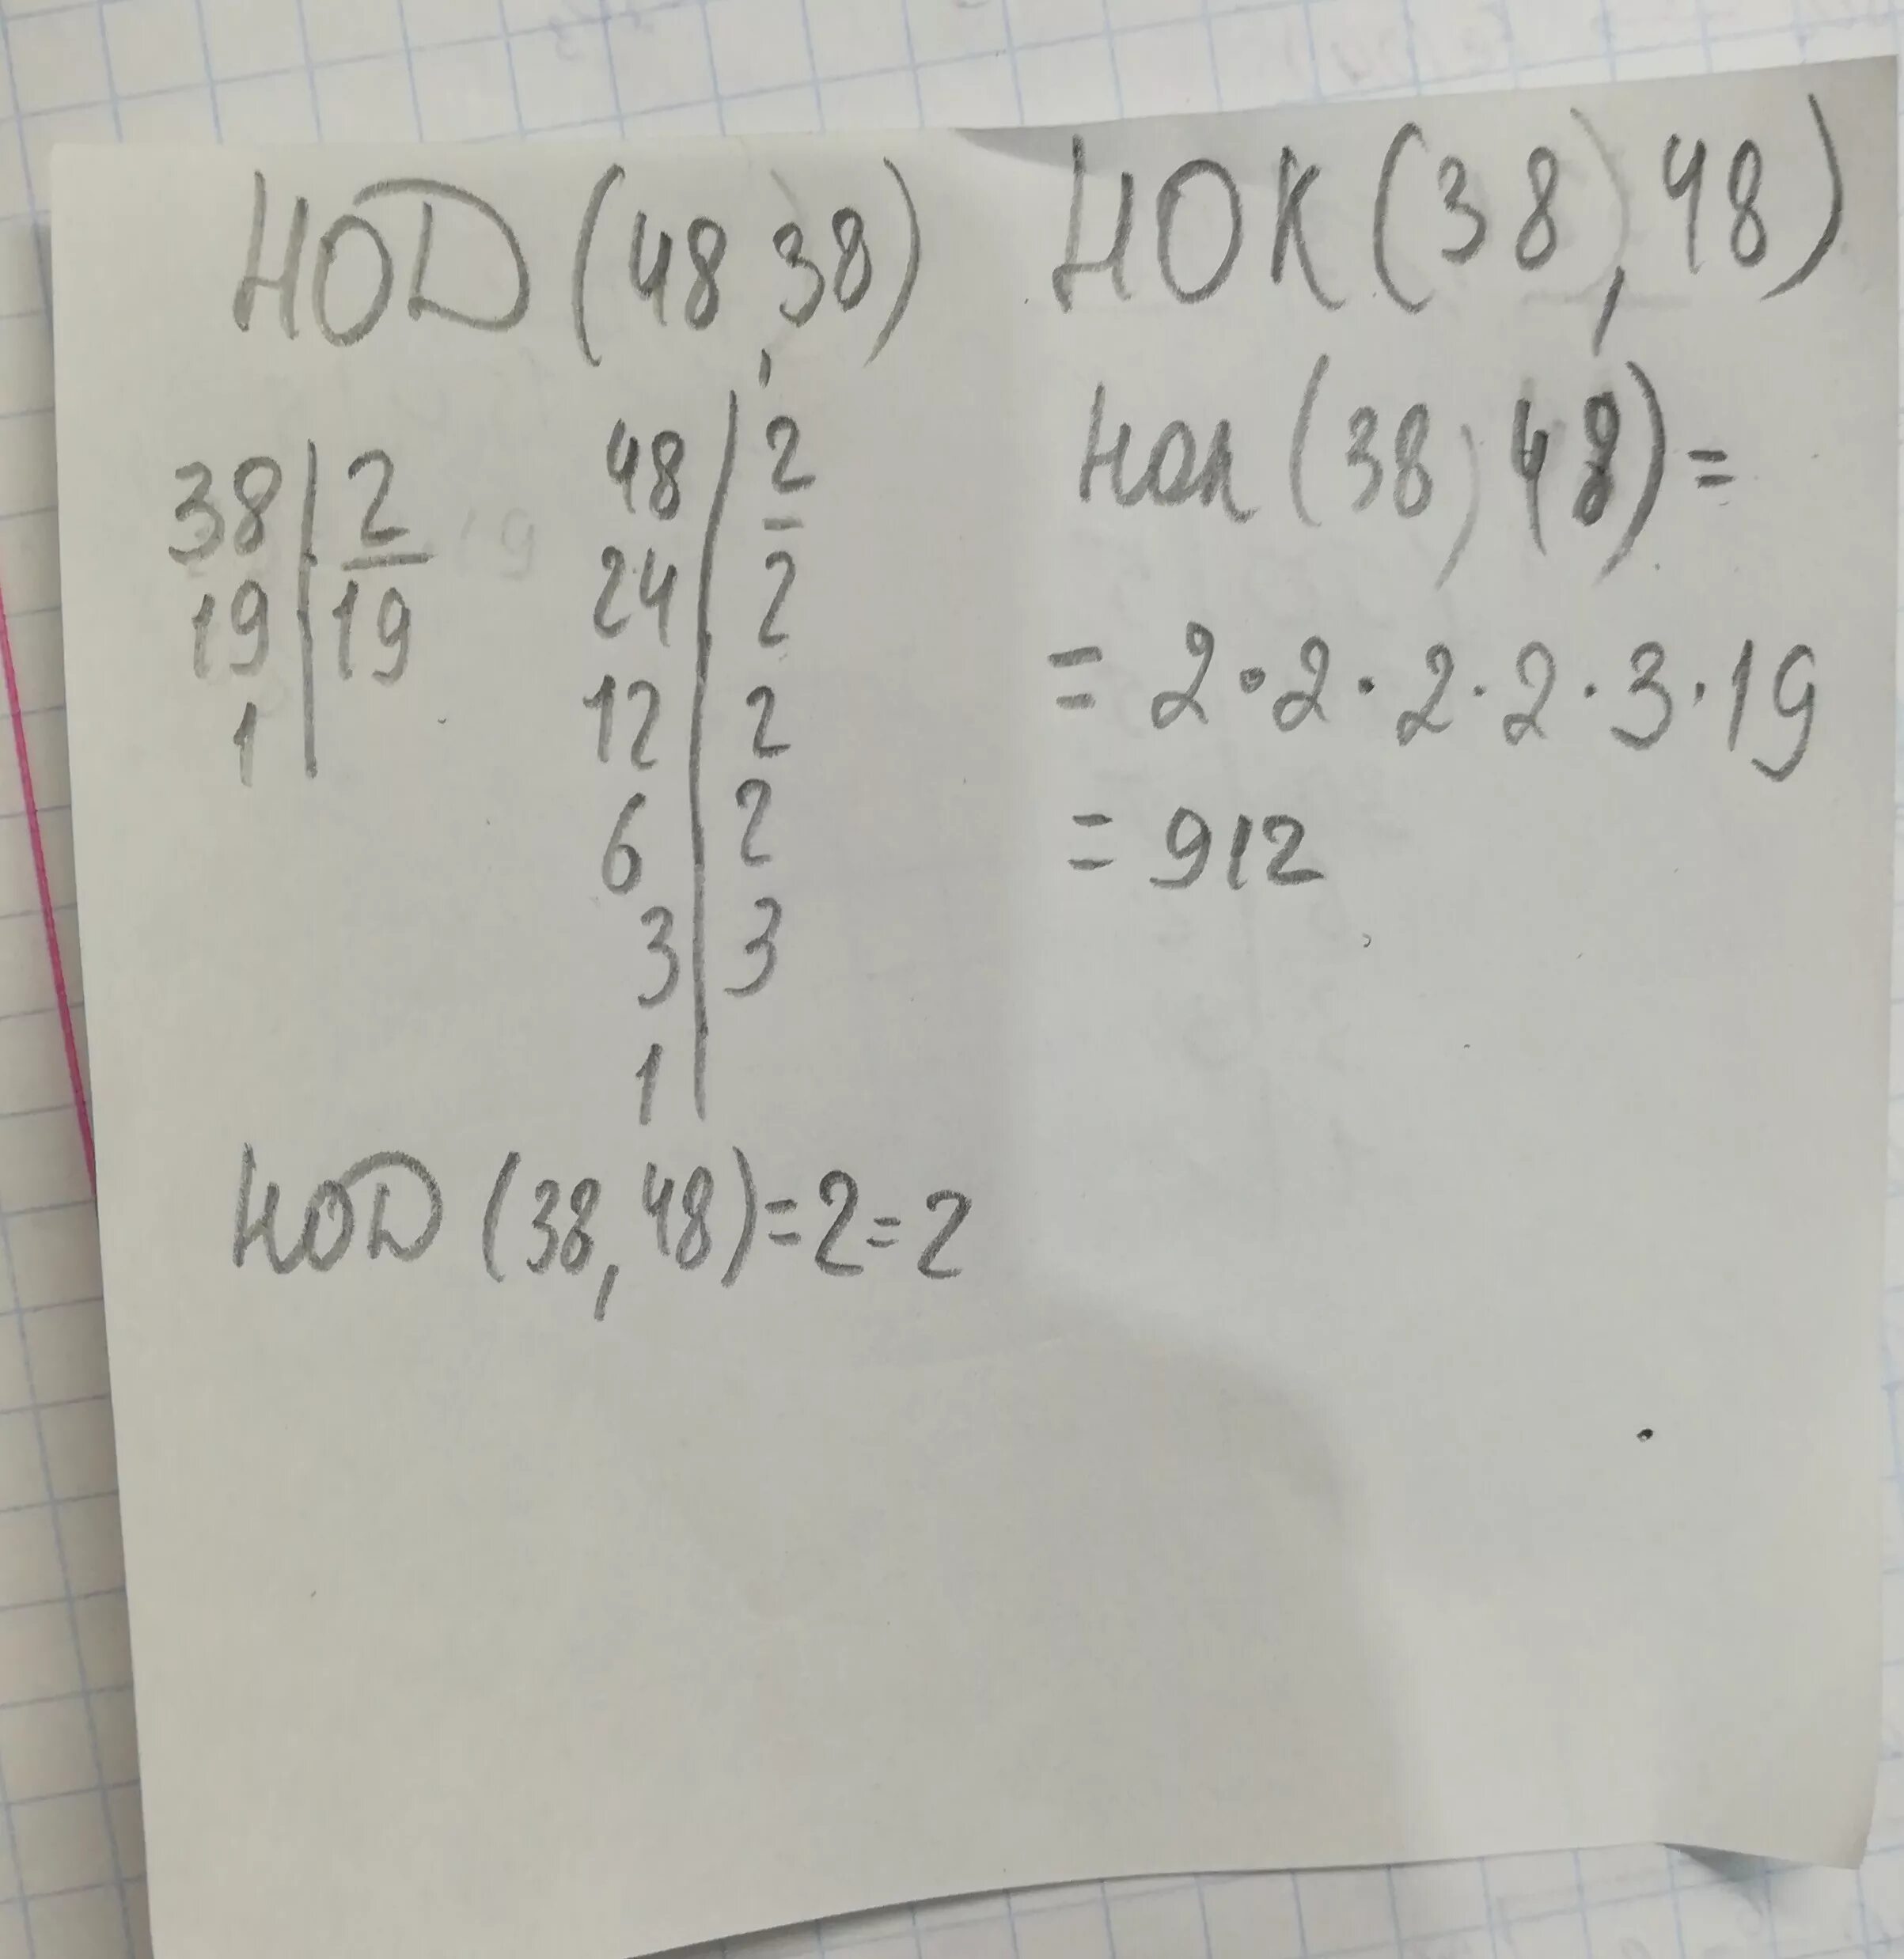 НОД (48, 38)
38 | 2
19 | 19
1 |
48 | 2
24 | 2
12 | 2
6 | 2
3 | 3
1 |
НОД (38, 48) = 2 = 2
НОК (38, 48)
НОК (38, 48) =
= 2 · 2 · 2 · 2 · 3 · 19
= 912